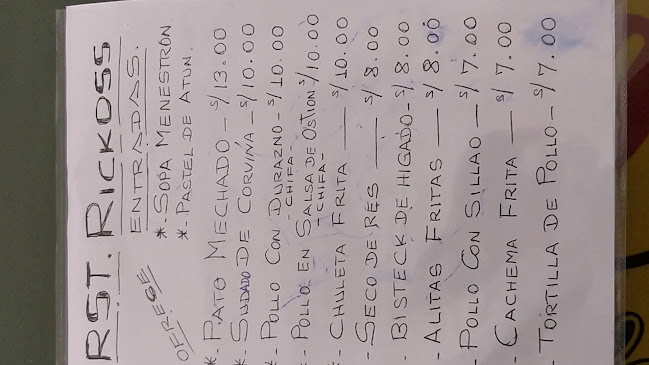 RST. RICKOSS
ENTRADAS.
*-SOPA MENESTRÓN
*-PASTEL DE ATUN.
OFRECE
*-PATO MECHADO - S/13.00
*-SUDADO DE CORVINA - S/10.00
*-POLLO CON DURAZNO - S/10.00
-CHIFA-
- POLLO EN SALSA DE OSTION S/10.00
-CHIFA-
- CHULETA FRITA - S/10.00
- SECO DE RES - S/8.00
- BISTECK DE HIGADO - S/8.00
- ALITAS FRITAS - S/8.00
- POLLO CON SILLAO - S/7.00
- CACHEMA FRITA - S/7.00
- TORTILLA DE POLLO - S/7.00